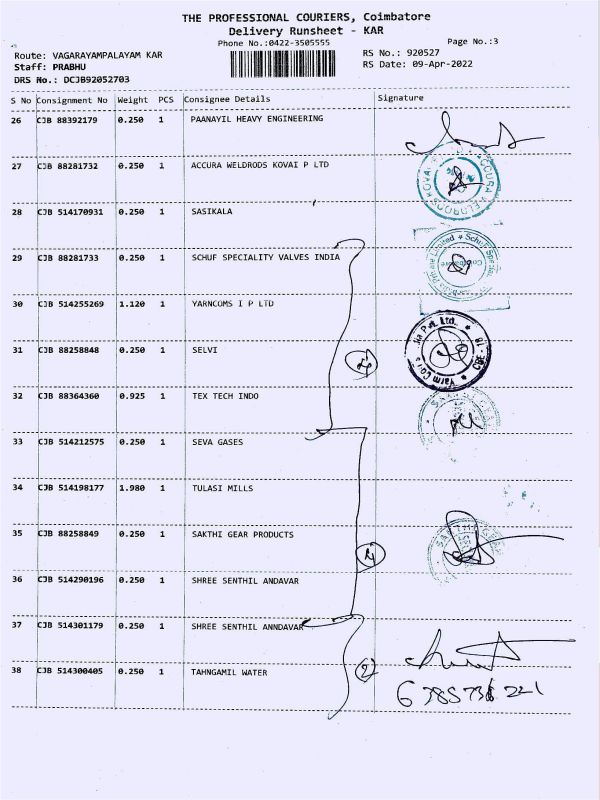 THE PROFESSIONAL COURIERS, Coimbatore
Delivery Runsheet - KAR
Phone No.:0422-3505555
Page No.:3
Route: VAGARAYAMPALAYAM KAR
RS No.: 920527
Staff: PRABHU
RS Date: 09-Apr-2022
DRS No.: DCJB92052703
S No Consignment No Weight PCS Consignee Details Signature
26 CJB 88392179 0.250 1 PAANAYIL HEAVY ENGINEERING
27 CJB 88281732 0.250 1 ACCURA WELDRODS KOVAI P LTD
28 CJB 514170931 0.250 1 SASIKALA
29 CJB 88281733 0.250 1 SCHUF SPECIALITY VALVES INDIA
30 CJB 514255269 1.120 1 YARNCOMS I P LTD
31 CJB 88258848 0.250 1 SELVI
32 CJB 88364360 0.925 1 TEX TECH INDO
33 CJB 514212575 0.250 1 SEVA GASES
34 CJB 514198177 1.980 1 TULASI MILLS
35 CJB 88258849 0.250 1 SAKTHI GEAR PRODUCTS
36 CJB 514290196 0.250 1 SHREE SENTHIL ANDAVAR
37 CJB 514301179 0.250 1 SHREE SENTHIL ANNDAVAR
38 CJB 514300405 0.250 1 TAHNGAMIL WATER